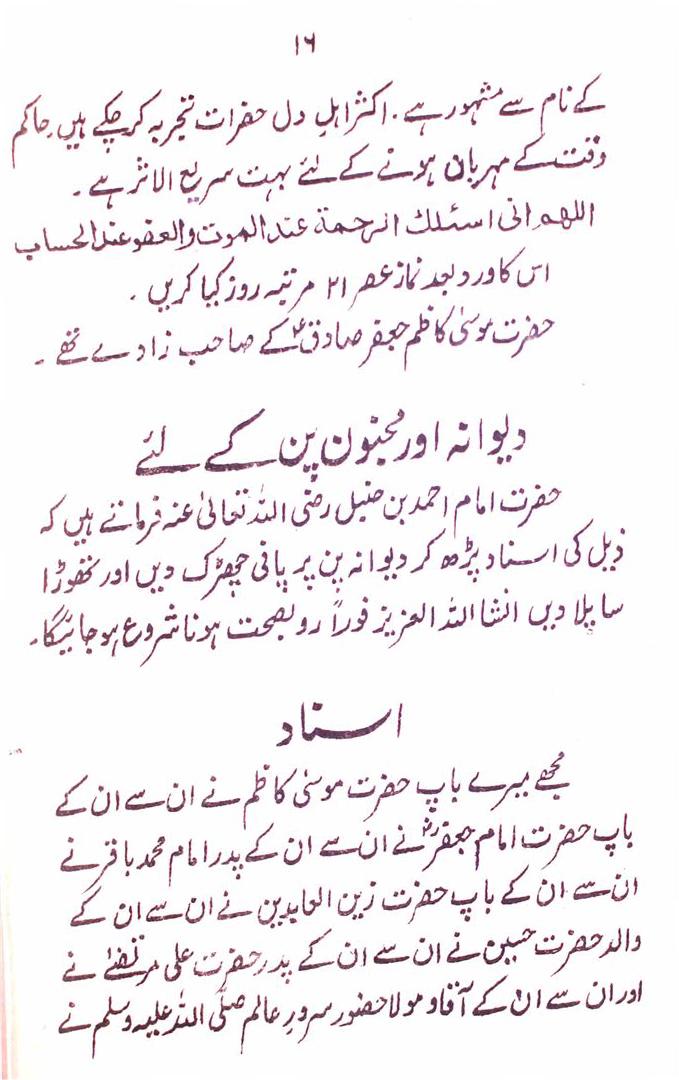 ۱۶
کے نام سے مشہور ہے. اکثر اہلِ دل حضرات تجربہ کر چکے ہیں. حاکم
وقت کے مہربان ہونے کے لئے بہت سریع الاثر ہے.
اللھم انی اسئلك الرحمة عند الموت والعفو عند الحساب
اس کا ورد بعد نماز عصر ۲۱ مرتبہ روز کیا کریں.
حضرت موسیٰ کاظم جعفر صادقؑ کے صاحب زادے تھے.
دیوانہ اور مجنون پن کے لئے
حضرت امام احمد بن حنبل رضی اللہ تعالیٰ عنہ فرماتے ہیں کہ
ذیل کی اسناد پڑھ کر دیوانہ پن پر پانی چھڑک دیں اور تھوڑا
سا پلا دیں انشا اللہ العزیز فوراً رو بصحت ہونا شروع ہو جائیگا.
اسناد
مجھے میرے باپ حضرت موسیٰ کاظم نے ان سے ان کے
باپ حضرت امام جعفرؓ نے ان سے ان کے پدر امام محمد باقر نے
ان سے ان کے باپ حضرت زین العابدین نے ان سے ان کے
والد حضرت حسین نے ان سے ان کے پدر حضرت علی مرتضےٰ نے
اور ان سے ان کے آقا و مولا حضور سرورِ عالم صلی اللہ علیہ وسلم نے